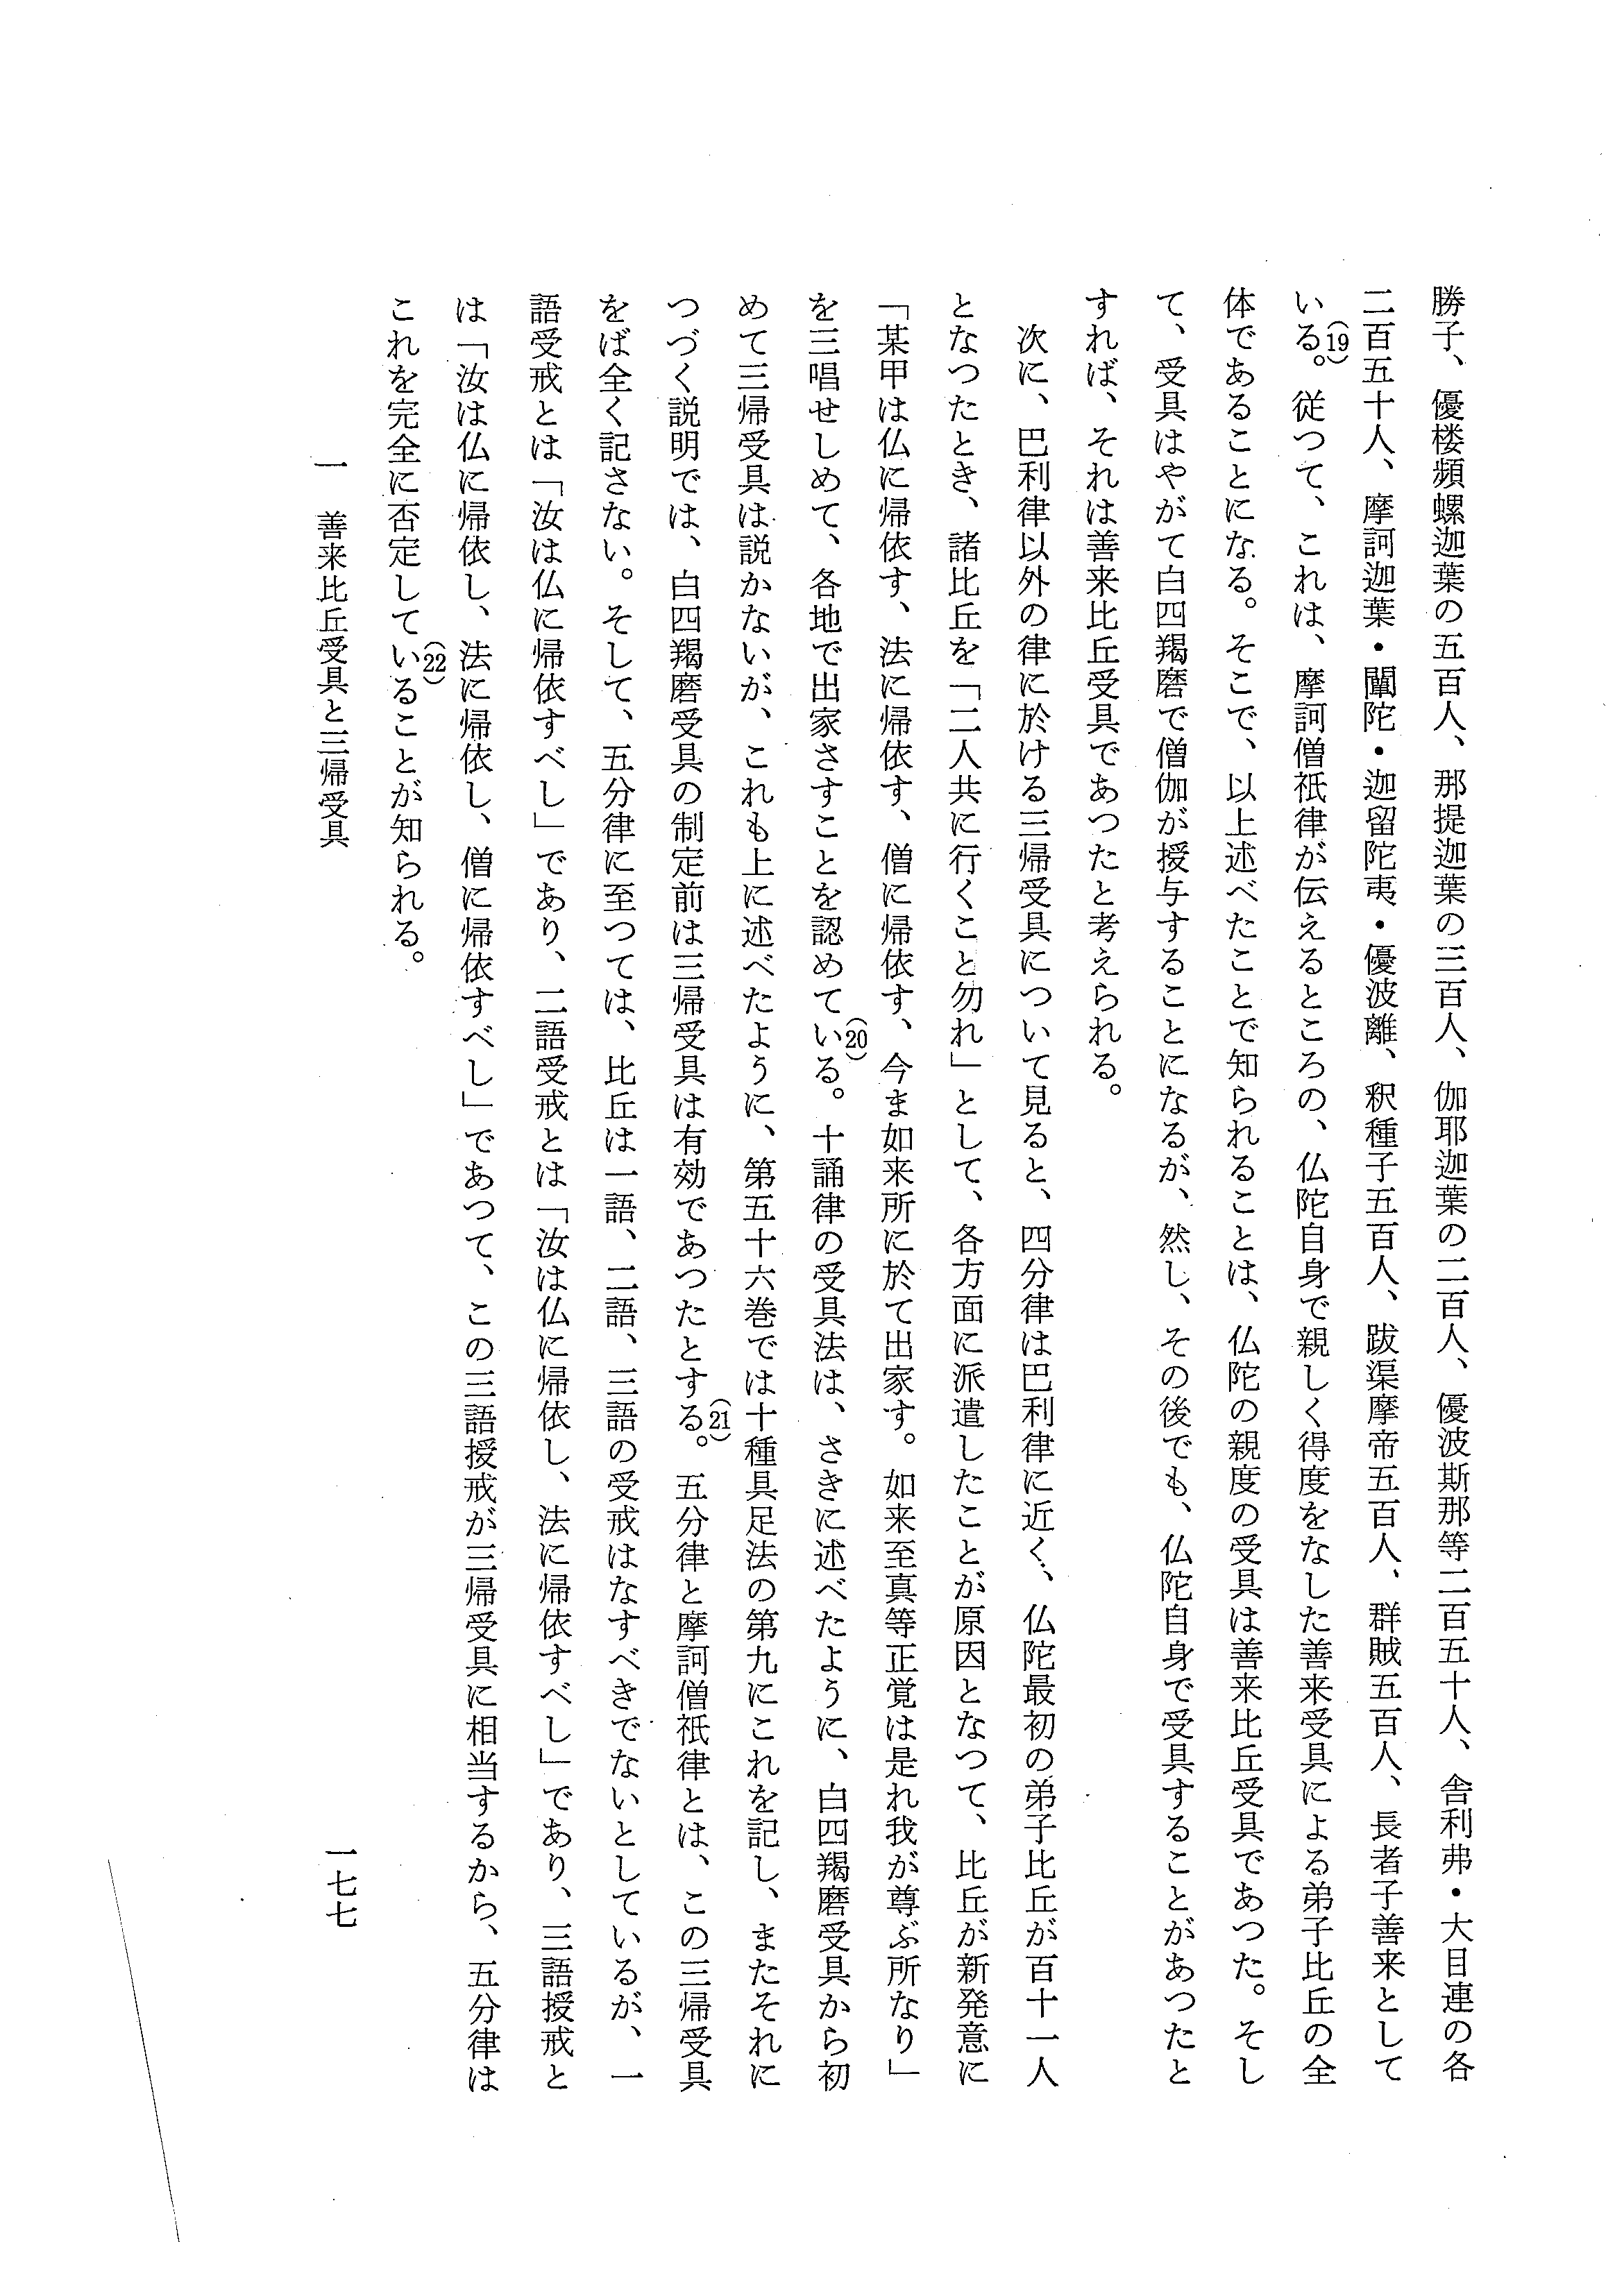 勝子、優楼頻螺迦葉の五百人、那提迦葉の三百人、伽耶迦葉の二百人、優波斯那等二百五十人、舎利弗・大目連の各
二百五十人、摩訶迦葉・闡陀・迦留陀夷・優波離、釈種子五百人、跋渠摩帝五百人、群賊五百人、長者子善来として
いる。(19)従つて、これは、摩訶僧祇律が伝えるところの、仏陀自身で親しく得度をなした善来受具による弟子比丘の全
体であることになる。そこで、以上述べたことで知られることは、仏陀の親度の受具は善来比丘受具であつた。そし
て、受具はやがて白四羯磨で僧伽が授与することになるが、然し、その後でも、仏陀自身で受具することがあつたと
すれば、それは善来比丘受具であつたと考えられる。
次に、巴利律以外の律に於ける三帰受具について見ると、四分律は巴利律に近く、仏陀最初の弟子比丘が百十一人
となつたとき、諸比丘を「二人共に行くこと勿れ」として、各方面に派遣したことが原因となつて、比丘が新発意に
「某甲は仏に帰依す、法に帰依す、僧に帰依す、今ま如来所に於て出家す。如来至真等正覚は是れ我が尊ぶ所なり」
を三唱せしめて、各地で出家さすことを認めている。(20)十誦律の受具法は、さきに述べたように、白四羯磨受具から初
めて三帰受具は説かないが、これも上に述べたように、第五十六巻では十種具足法の第九にこれを記し、またそれに
つづく説明では、白四羯磨受具の制定前は三帰受具は有効であつたとする。(21)五分律と摩訶僧祇律とは、この三帰受具
をば全く記さない。そして、五分律に至つては、比丘は一語、二語、三語の受戒はなすべきでないとしているが、一
語受戒とは「汝は仏に帰依すべし」であり、二語受戒とは「汝は仏に帰依し、法に帰依すべし」であり、三語授戒と
は「汝は仏に帰依し、法に帰依し、僧に帰依すべし」であつて、この三語授戒が三帰受具に相当するから、五分律は
これを完全に否定している(22)ことが知られる。
一 善来比丘受具と三帰受具
一七七